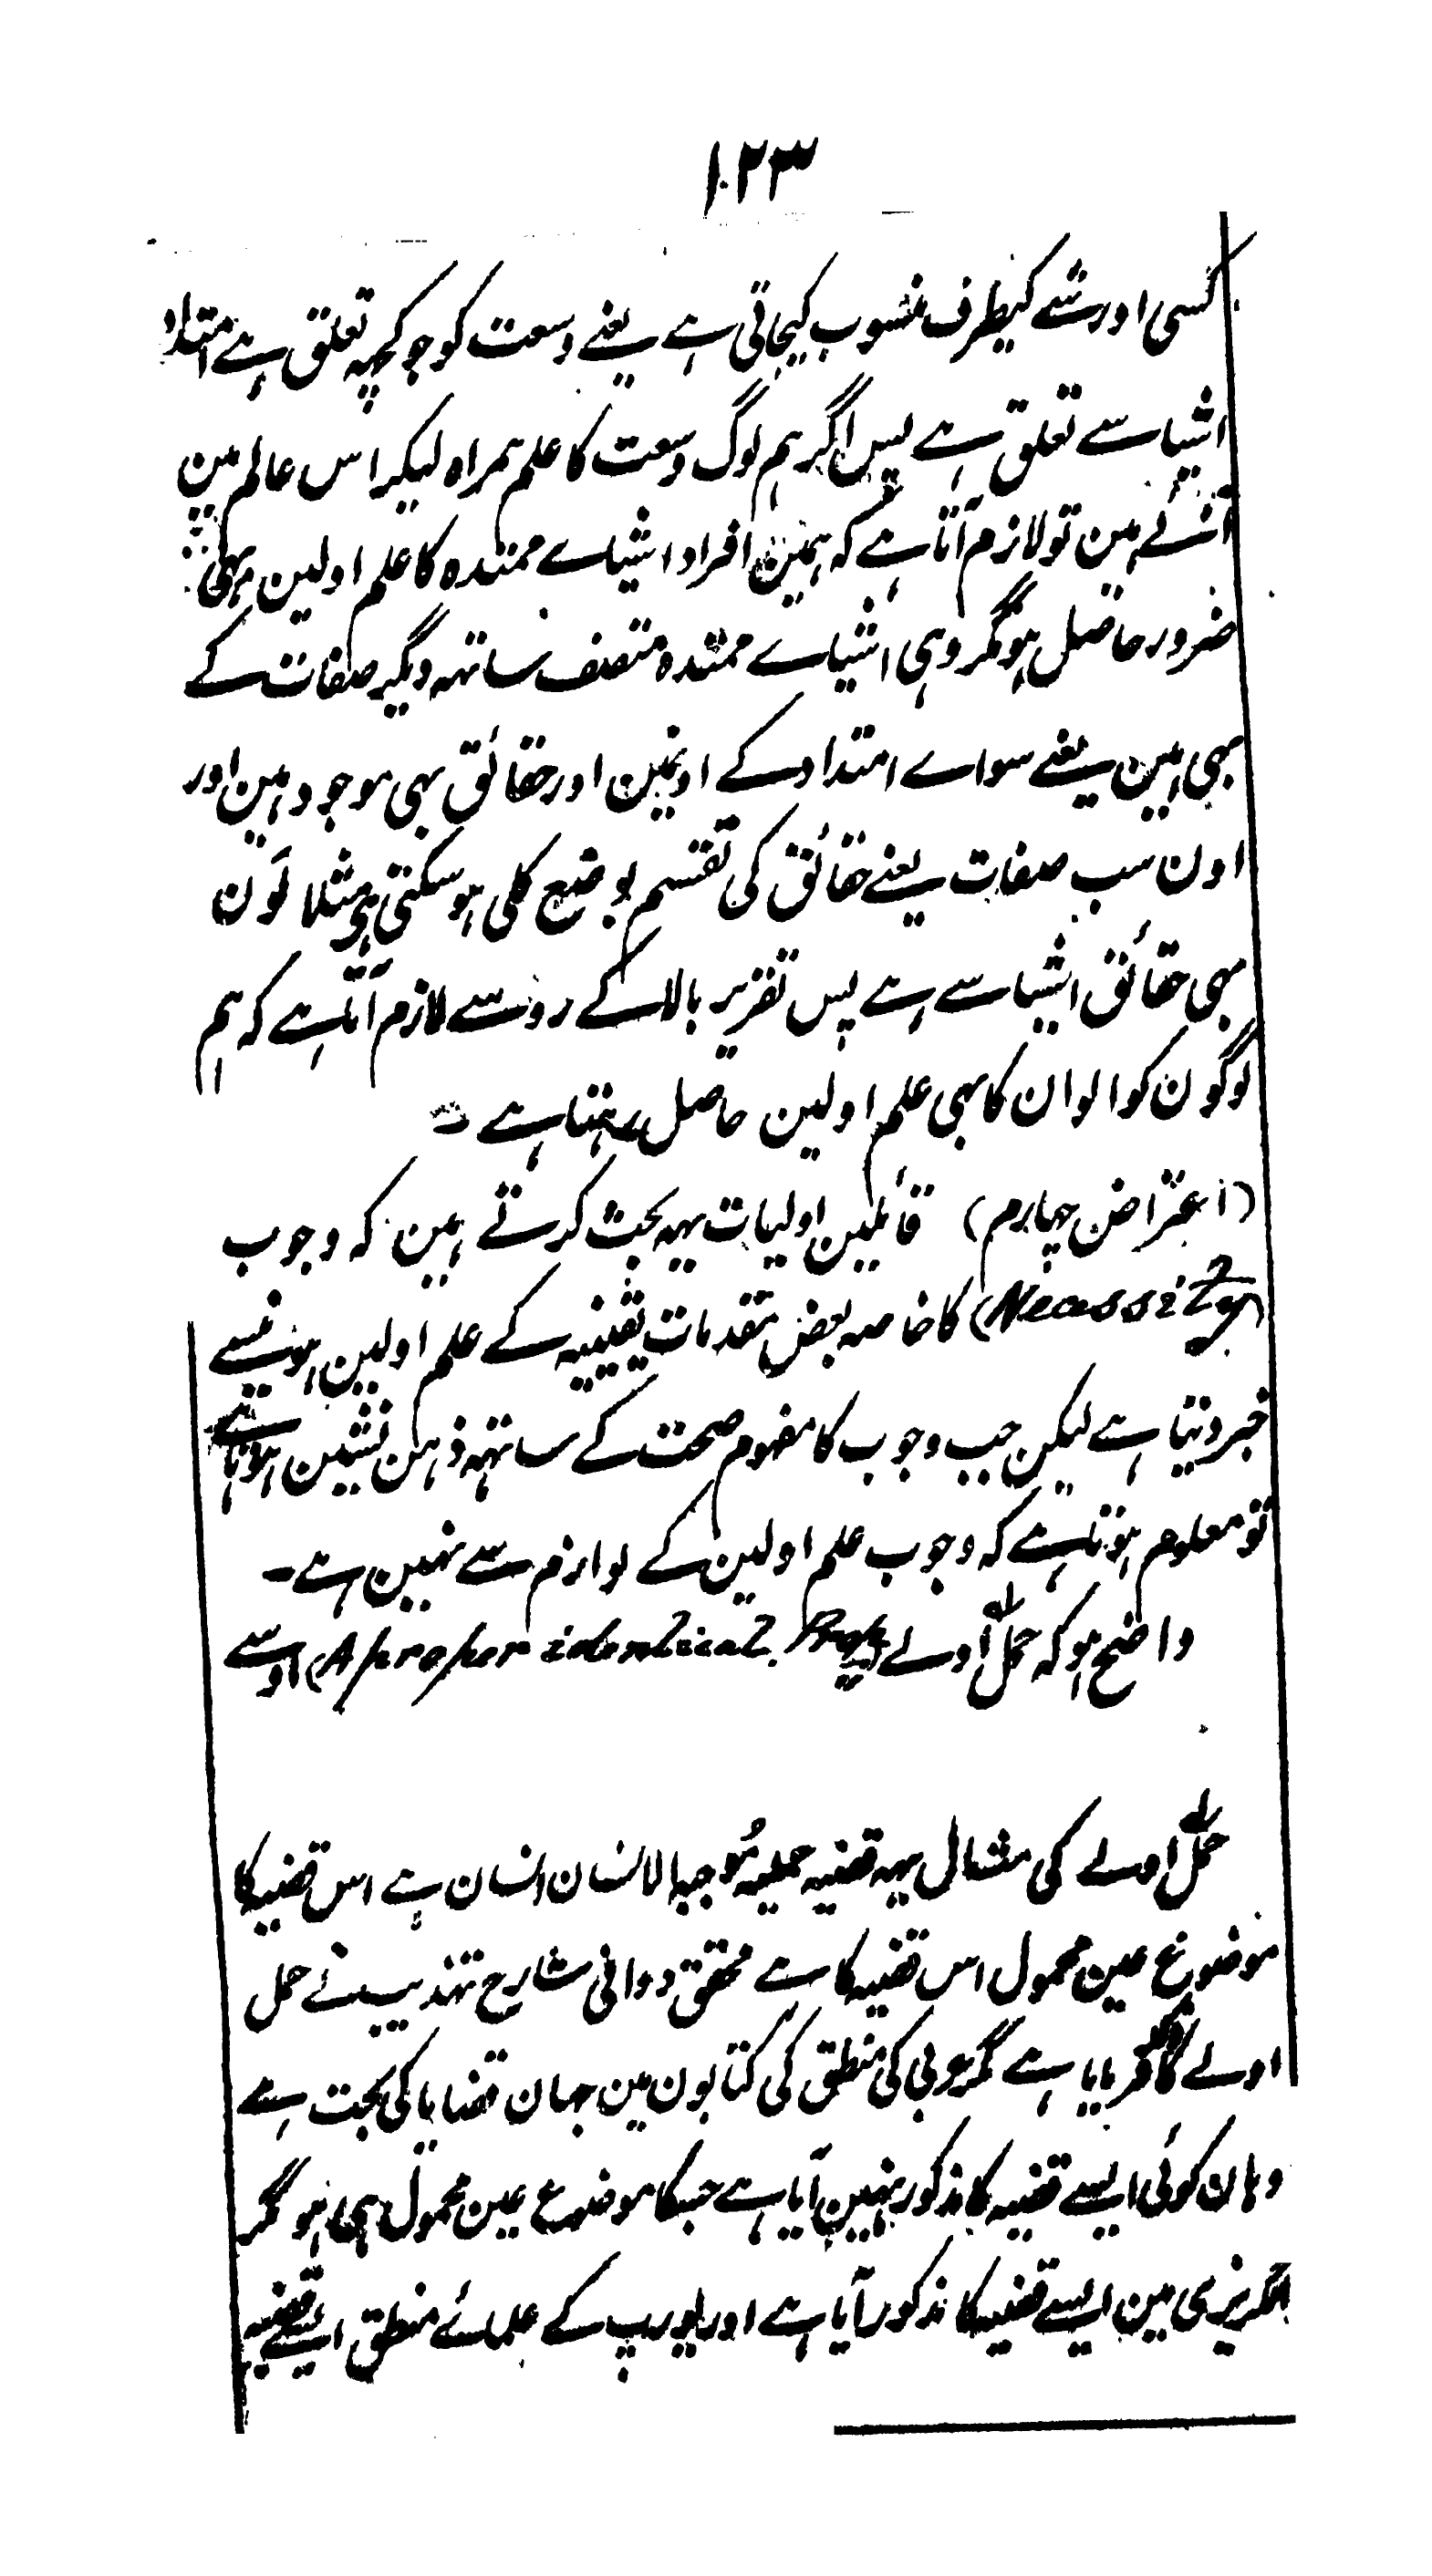 ١٢٣
کسی اور شے کیطرف منسوب کیجاتی ہے یعنے وسعت کو جو کچہہ تعلق ہے امتداد
اشیا سے تعلق ہے پس اگر ہم لوگ وسعت کا علم ہمراہ لیکر اس عالم مین
آتے ہین تو لازم آتا ہے کہ ہمین افراد اشیاے ممتدہ کا علم اولین بہی
ضرور حاصل ہو مگر وہی اشیاے ممتدہ متصف ساتہہ دیگر صفات کے
بہی ہین یعنے سواے امتداد کے اونمین اور حقائق بہی موجود ہین اور
اون سب صفات یعنے حقائق کی تقسیم بوضع کلی ہو سکتی ہی مثلا لَون
بہی حقائق اشیا سے ہے پس تقریر بالا کے رو سے لازم آتا ہے کہ ہم
لوگون کو الوان کا بہی علم اولین حاصل رہتا ہے
(اعتراض چہارم) قائلین اولیات یہہ بحث کرتے ہین کہ وجوب
(Necessity) کا خاصہ بعض مقدمات یقینیہ کے علم اولین ہونیسے
خبر دیتا ہے لیکن جب وجوب کا مفہوم صحت کے ساتہہ ذہن نشین ہوتا ہے
تو معلوم ہوتا ہے کہ وجوب علم اولین کے لوازم سے نہین ہے۔
واضح ہو کہ حمل اولے (A proper identical Prop) اوسے
حمل اولے کی مثال یہہ قضیہ حملیہ مُوجبہ الانسان انسان ہے اس قضیہ کا
موضوع عین محمول اس قضیہ کا ہے محقق دوانی شارح تہذیب نے حمل
اولے فرمایا ہے مگر عربی کی منطق کی کتابون مین جہان قضایا کی بحث ہے
وہان کوئی ایسے قضیہ کا مذکور نہین آیا ہے جسکا موضوع عین محمول ہی ہو مگر
انگریزی مین ایسے قضیہ کا مذکور آیا ہے اور یورپ کے علمائے منطق ایسے قضیہ